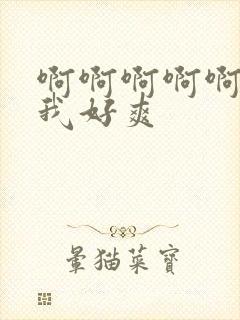 啊啊啊啊啊
我好爽
暈猫菜寶